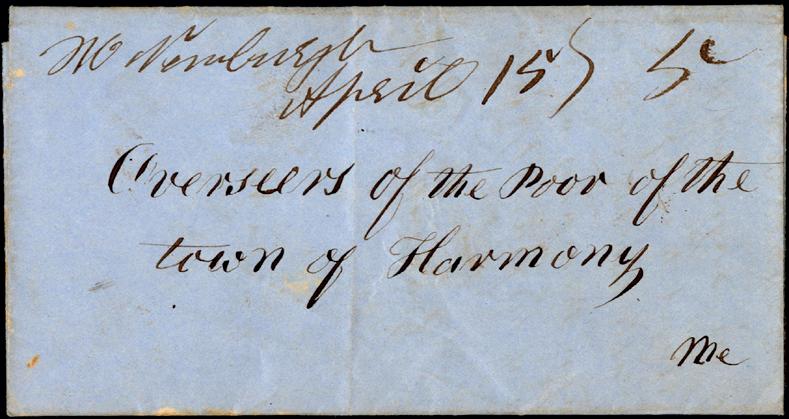 W Newburgh
April 15 } 5c
Overseers of the Poor of the
town of Harmony
Me